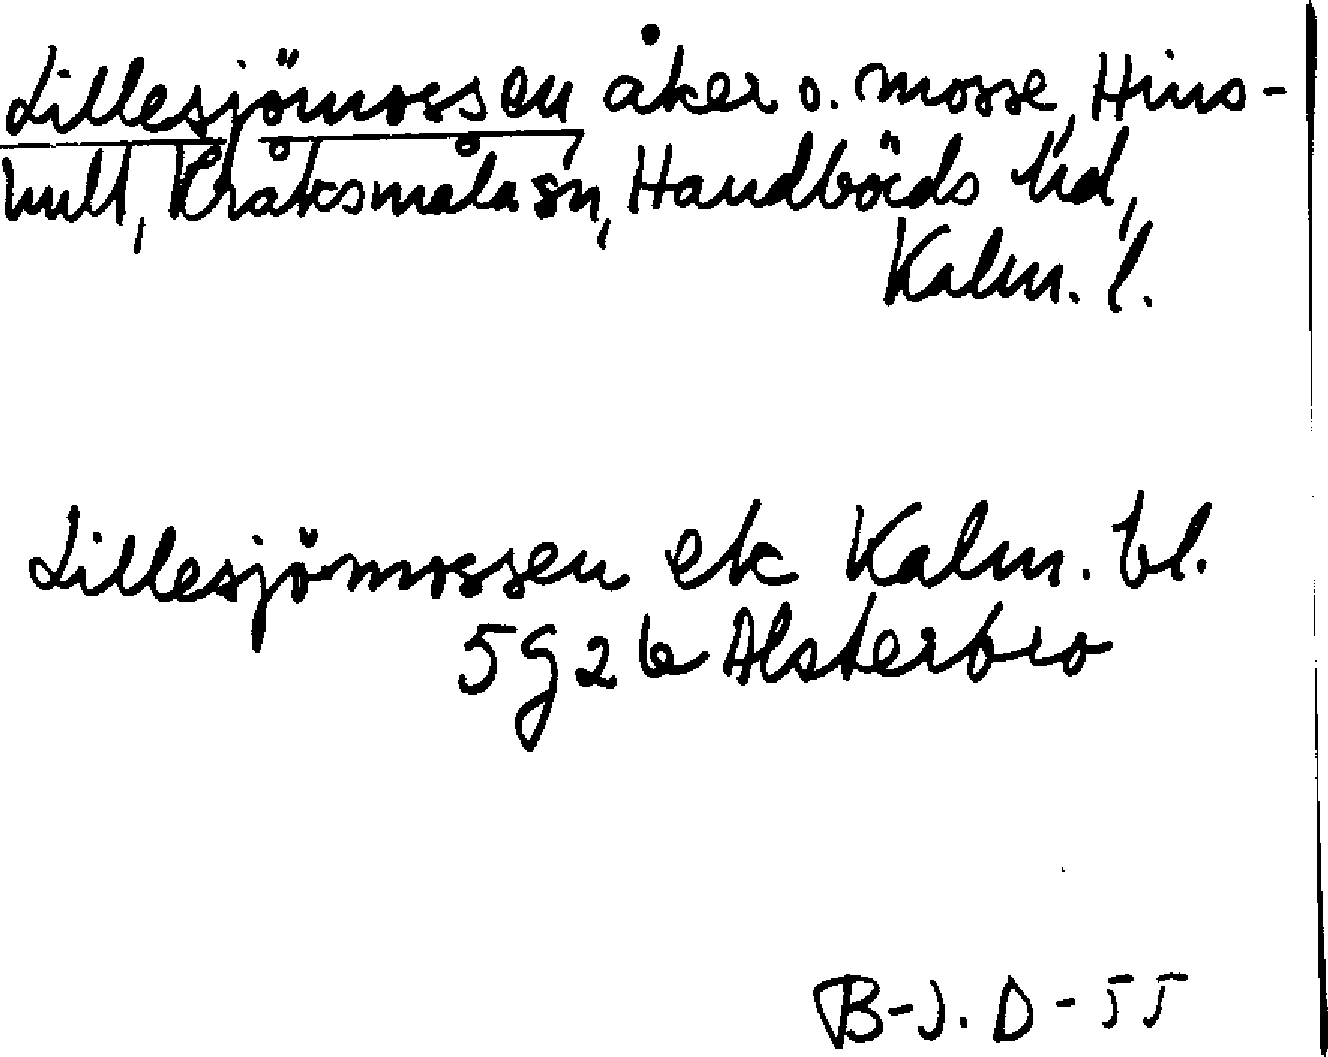 Lillesjömossen åker o. mosse, Hins-
hult, Kråksmåla sn, Handbörds hd,
Kalm. l.
Lillesjömossen ek Kalm. bl.
5g2b Alsterbro
B-J. D-55